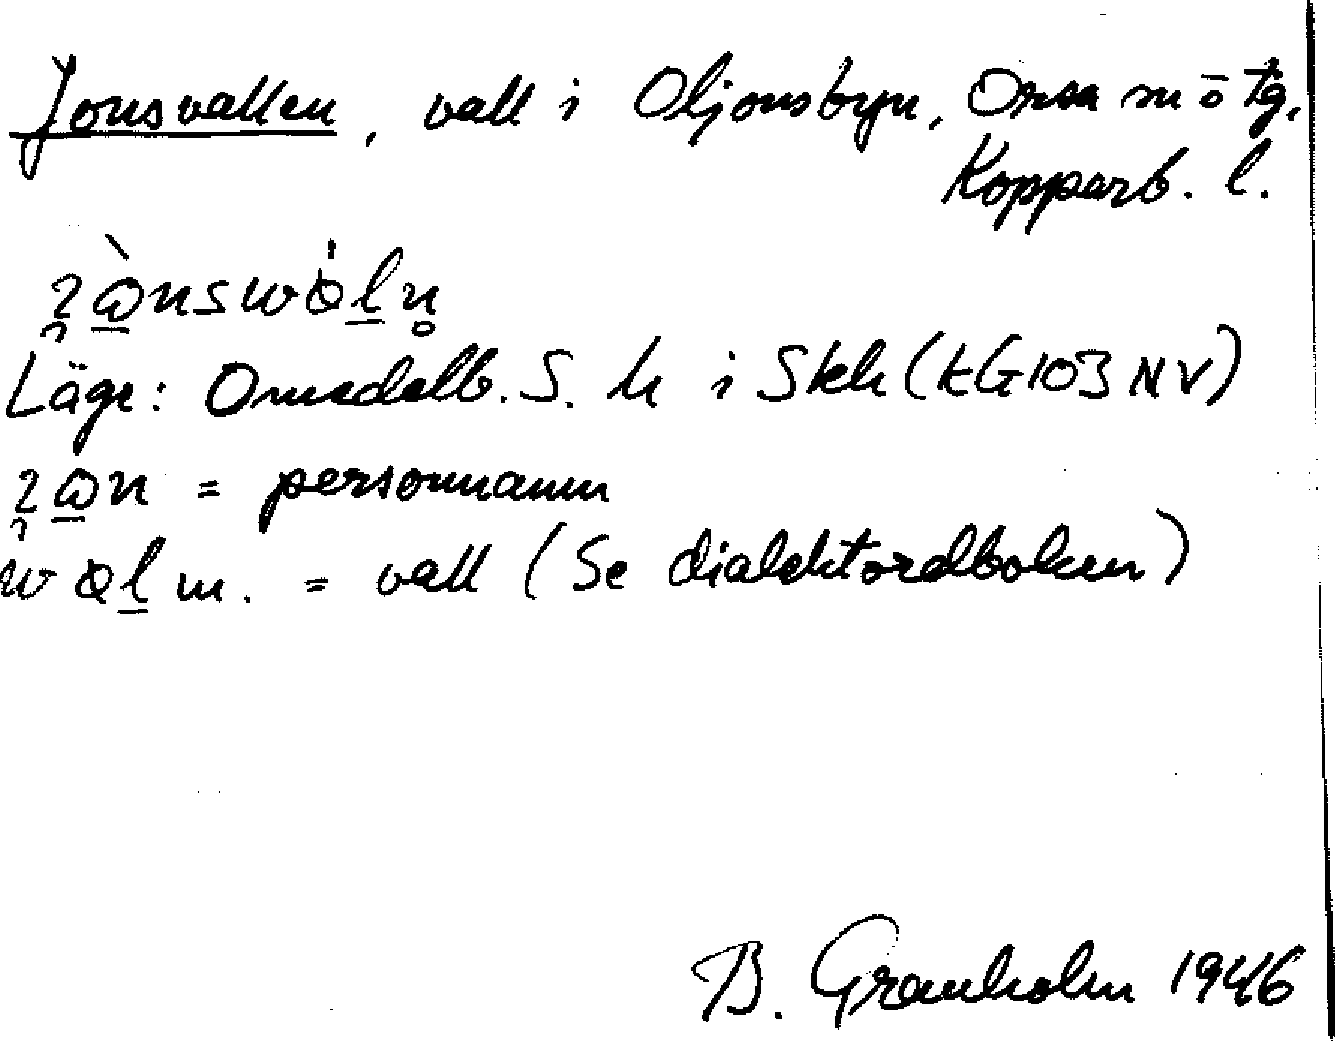 Jonsvallen, vall i Oljonsbyn, Orsa sn o tg,
Kopparb. l.
Läge: Omsdalb. S. h i Skh (kG103 NV)
= personnamn
m. = vall (Se dialektordboken)
B. Granholm 1946